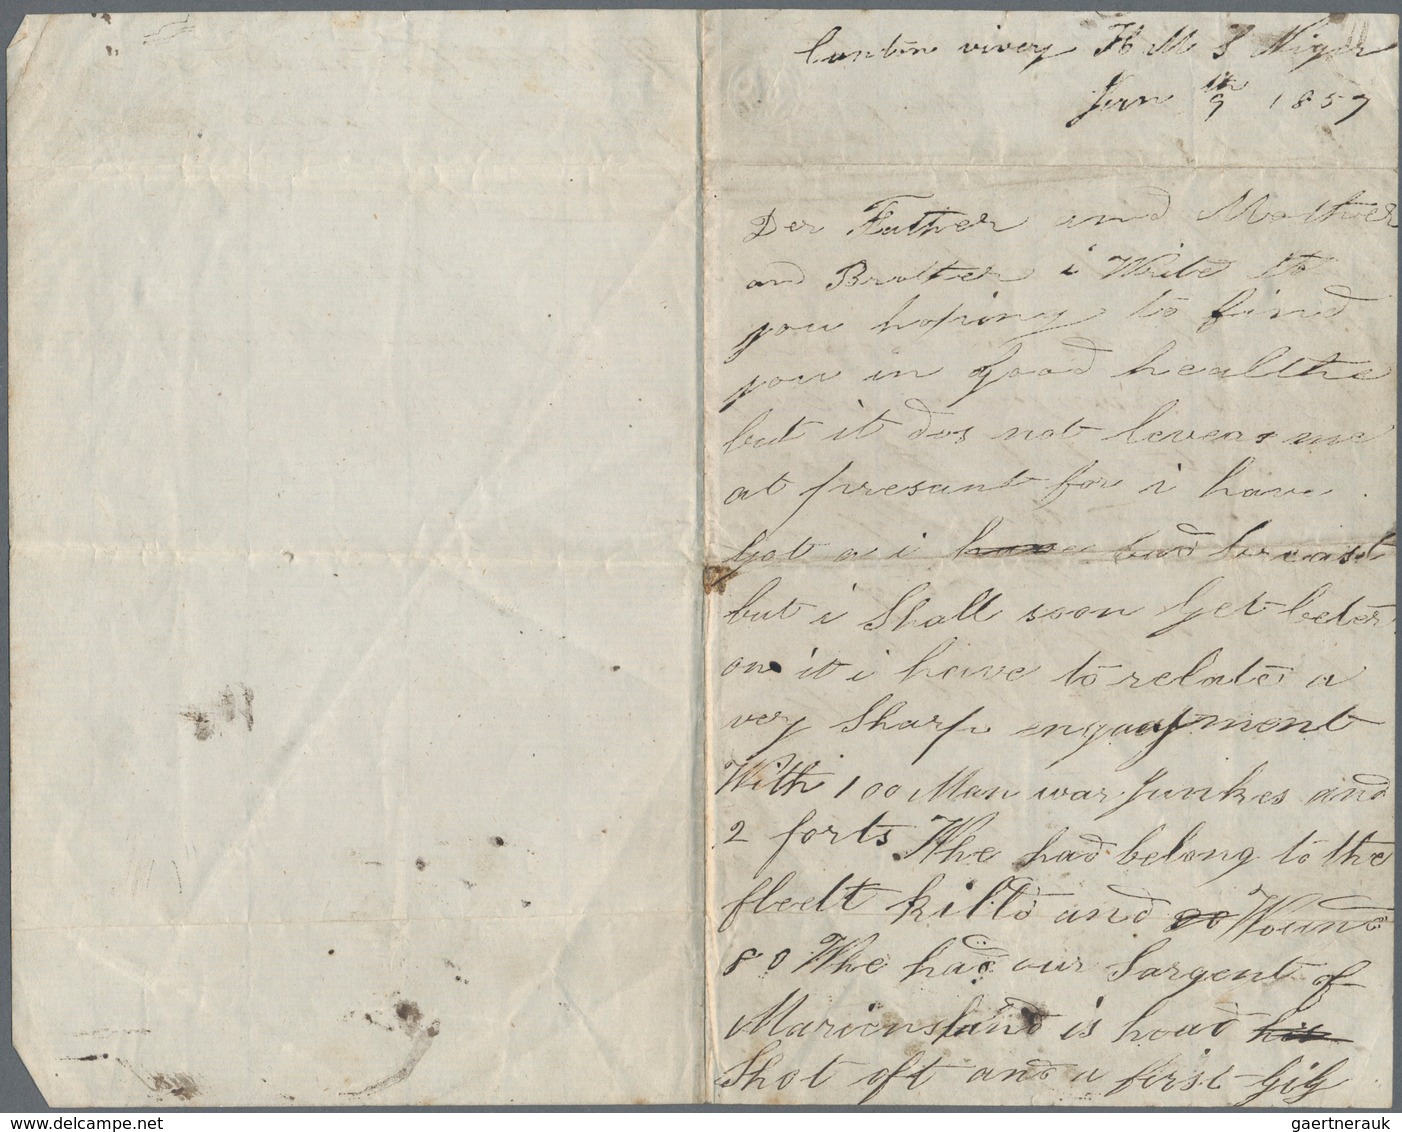 Canton river H M S Niger
Jun 9th 1857
Der Father and Mother
and Brother i Write to
you hoping to find
you in good healthe
but it dos not leveas me
at presant for i have
Got a i have bad breast
but i Shall soon Get beter
on it i have to relate a
very Sharp engaagment
With 100 Man war Junkes and
2 forts Whe had belong to the
fleelt killd and Wound
80 Whe had our Sargent of
Mariens hand is head hit
Shot oft and a first Gig
gaertnerauk @